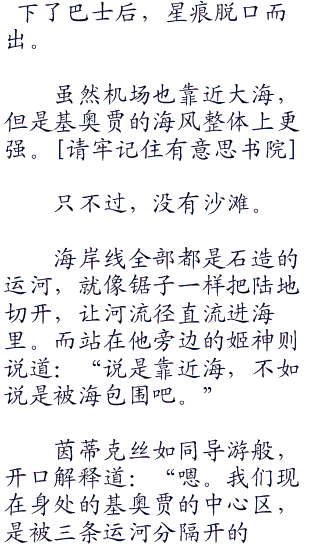 下了巴士后，星痕脱口而
出。
虽然机场也靠近大海，
但是基奥贾的海风整体上更
强。[请牢记住有意思书院]
只不过，没有沙滩。
海岸线全部都是石造的
运河，就像锯子一样把陆地
切开，让河流径直流进海
里。而站在他旁边的姬神则
说道：“说是靠近海，不如
说是被海包围吧。”
茵蒂克丝如同导游般，
开口解释道：“嗯。我们现
在身处的基奥贾的中心区，
是被三条运河分隔开的